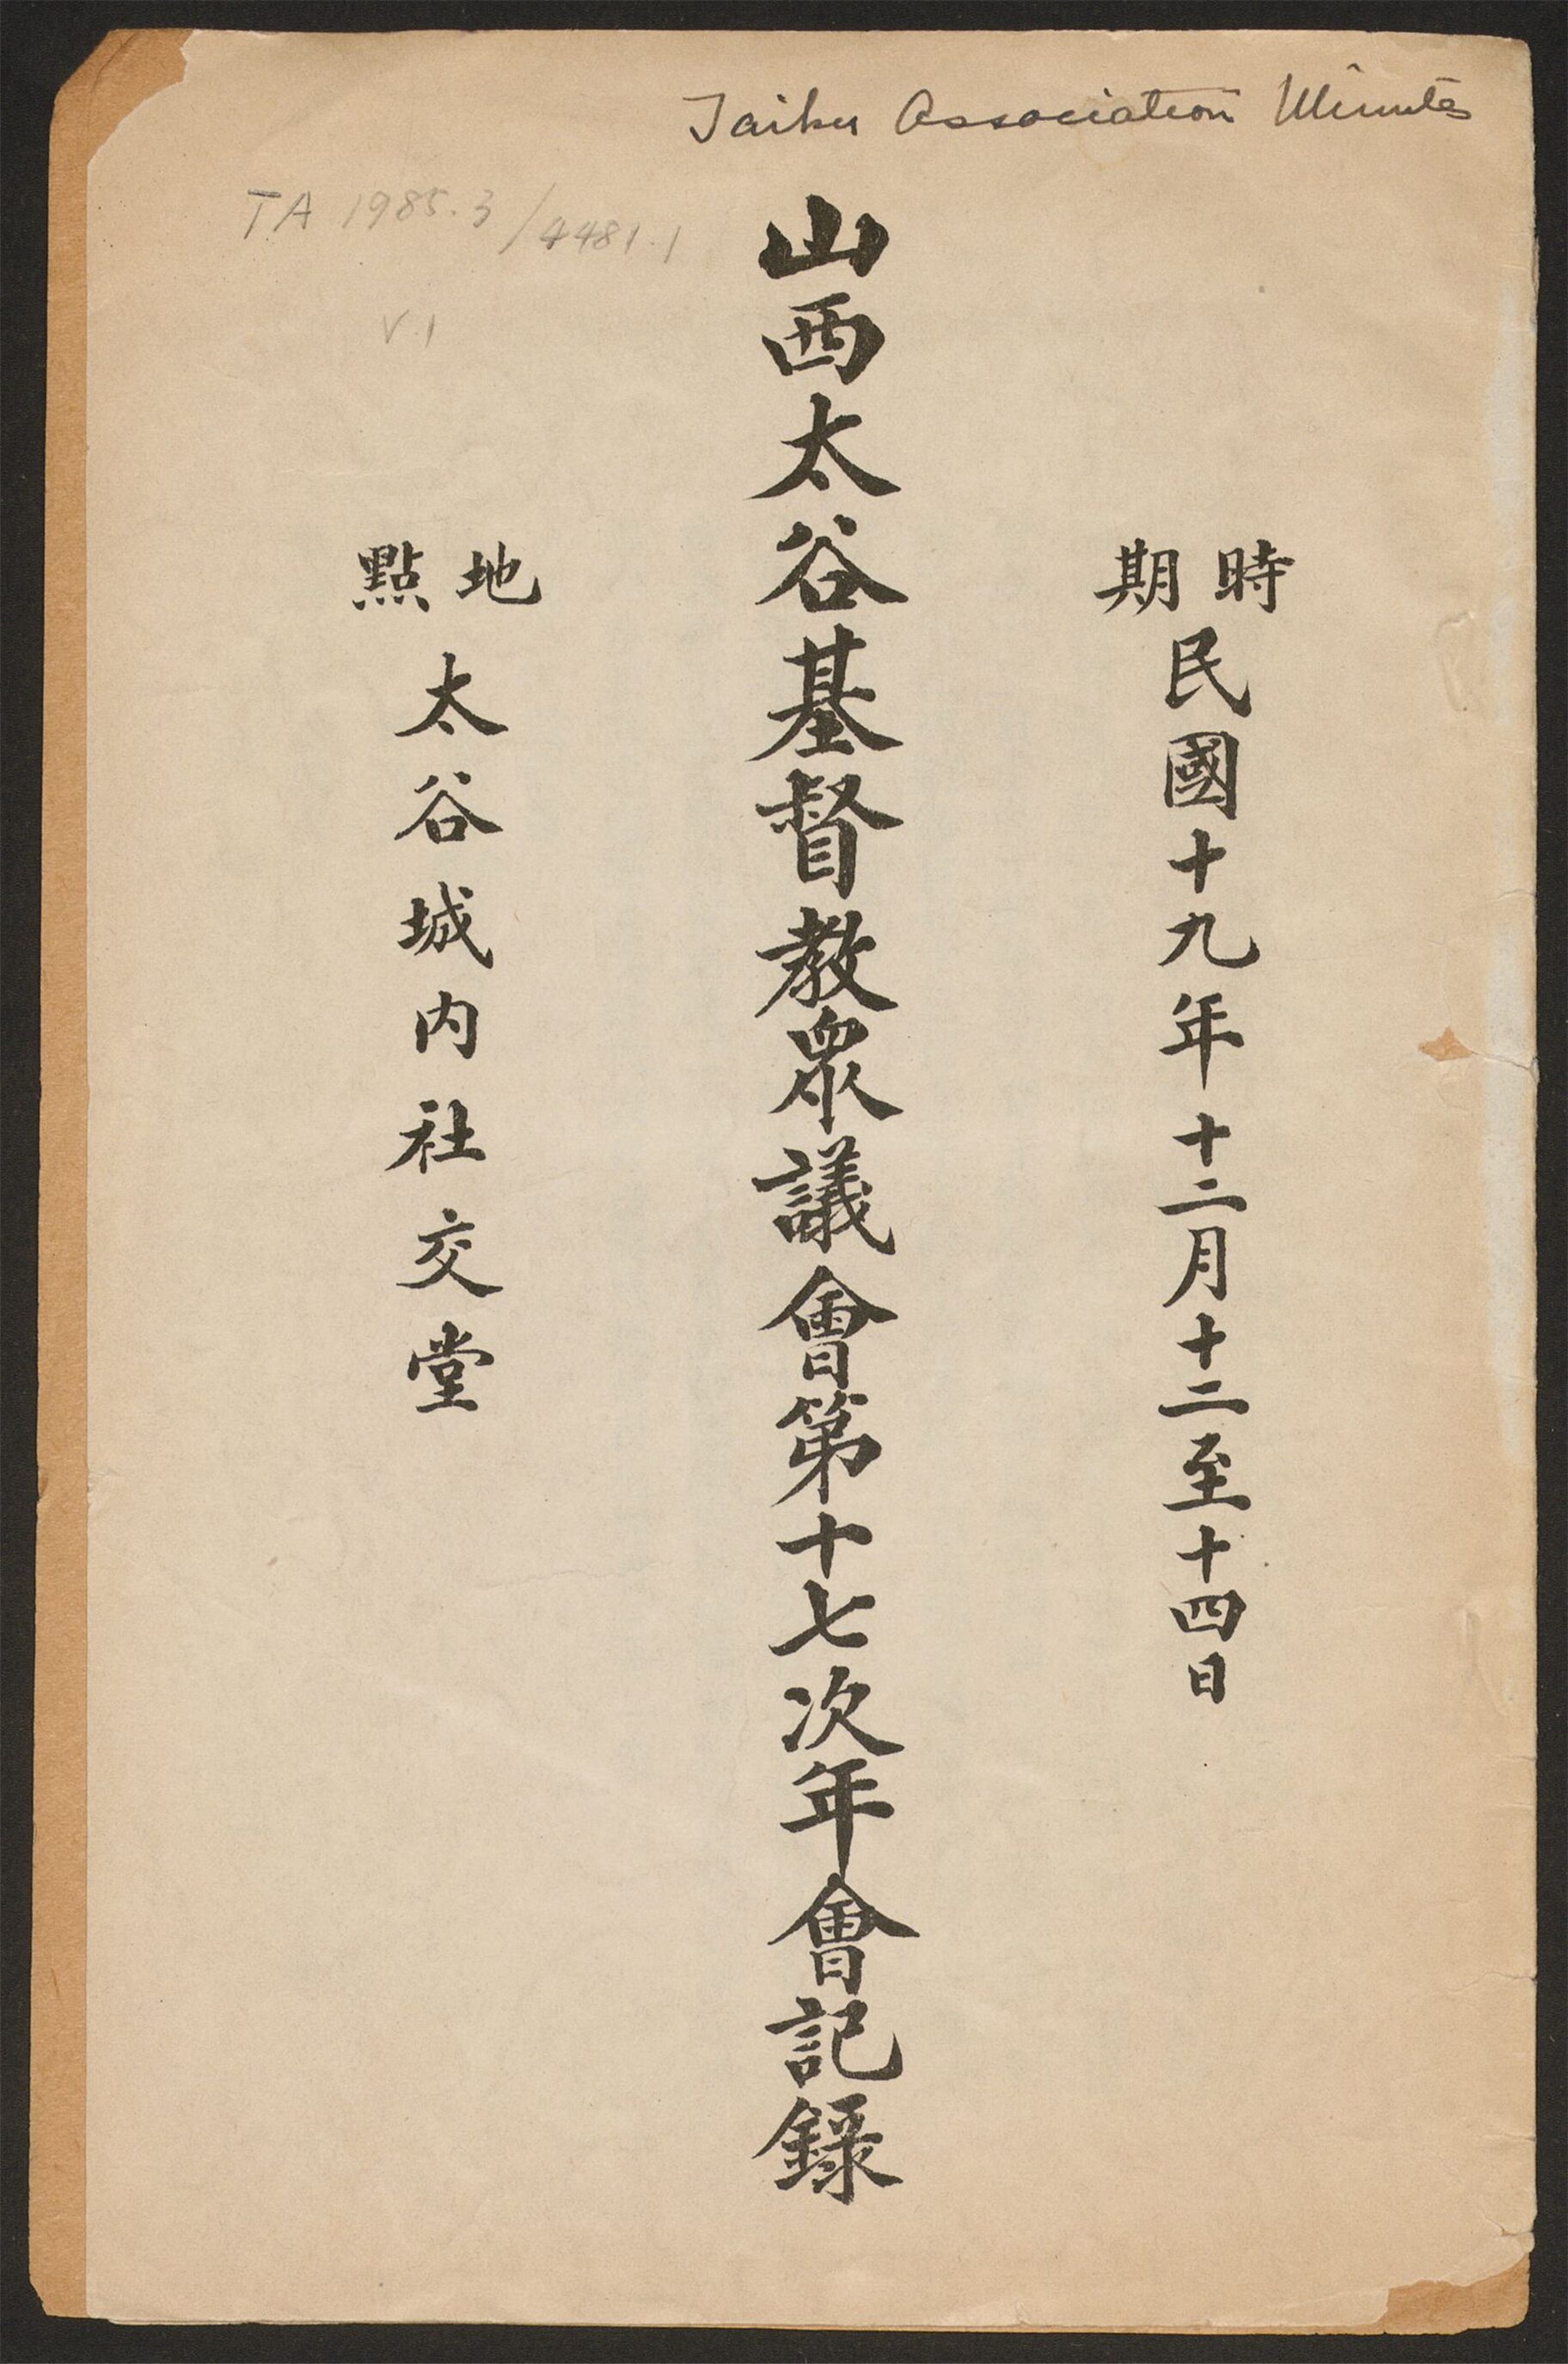 Taiku Association Minutes
TA 1985.3/4481.1
v.1
時期
民國十九年十二月十二至十四日
山西太谷基督教眾議會第十七次年會記錄
地點
太谷城内社交堂